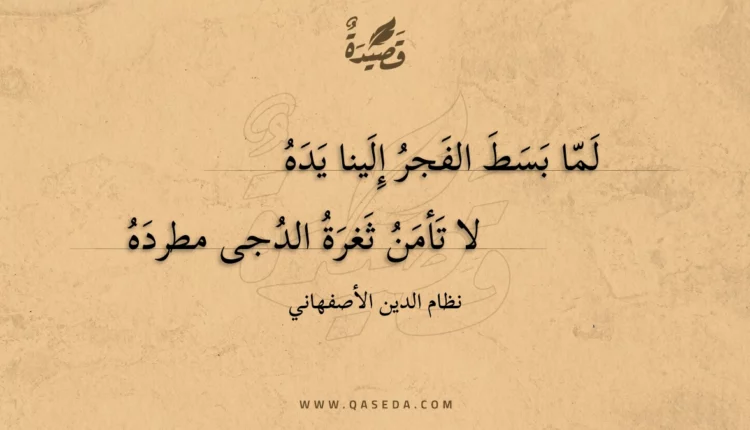 قَصِيْدَةٌ
لَمّا بَسَطَ الفَجرُ إِلَينا يَدَهُ
لا تَأمَنُ ثَغرَةُ الدُجى مطردَهُ
نظام الدين الأصفهاني
WWW.QASEDA.COM